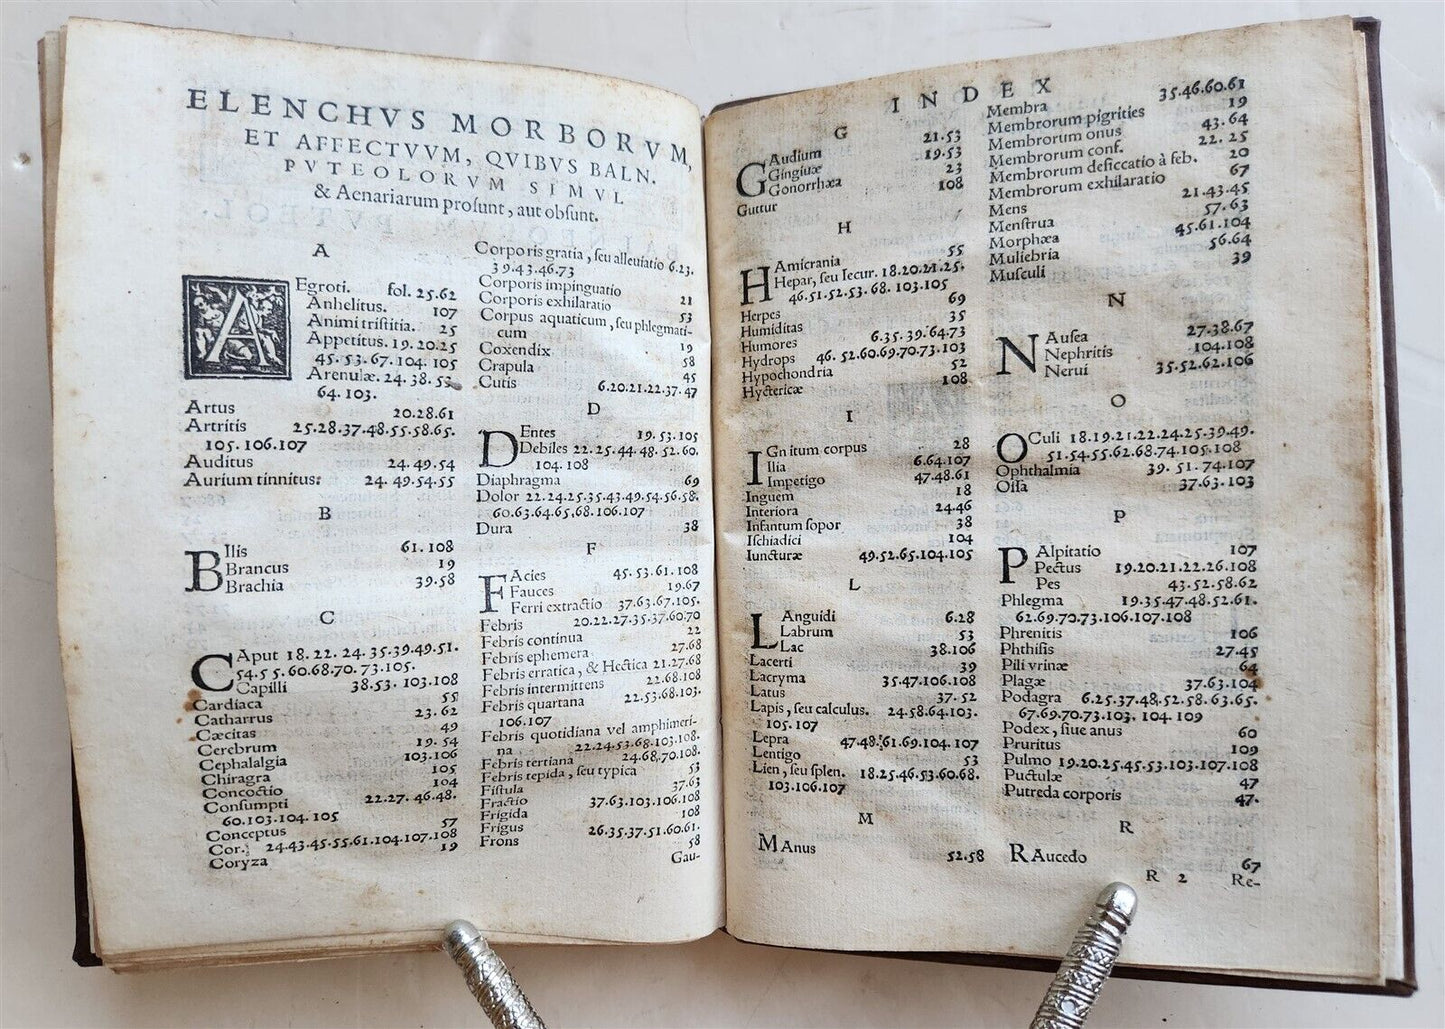 ELENCHVS MORBORVM,
ET AFFECTVVM, QVIBVS BALN.
PVTEOLORVM SIMVL
& Aenariarum prosunt, aut obsunt.
A
AEgroti. fol. 25.62
Anhelitus. 107
Animi tristitia. 25
Appetitus. 19.20.25
45.53.67.104.105
Arenulæ. 24.38.53
64.103.
Artus 20.28.61
Artritis 25.28.37.48.55.58.65.
105.106.107
Auditus 24.49.54
Aurium tinnitus: 24.49.54.55
B
BIlis 61.108
Brancus 19
Brachia 39.58
C
CAput 18.22.24.35.39.49.51.
54.55.60.68.70.73.105.
Capilli 38.53.103.108
Cardiaca 55
Catharrus 23.62
Cæcitas 49
Cerebrum 19.54
Cephalalgia 103.106
Chiragra 105
Concoctio 104
Consumpti 22.27.46.48.
60.103.104.105
Conceptus 57
Cor. 24.43.45.55.61.104.107.108
Coryza 19
Corporis gratia, seu alleuiatio 6.23.
39.43.46.73
Corporis impinguatio 21
Corporis exhilaratio 53
Corpus aquaticum, seu phlegmati-
cum 19
Coxendix 58
Crapula 45
Cutis 6.20.21.22.37.47
D
DEntes 19.53.105
Debiles 22.25.44.48.52.60.
104.108
Diaphragma 69
Dolor 22.24.25.35.43.49.54.56.58.
60.63.64.65.68.106.107
Dura 38
F
FAcies 45.53.61.108
Fauces 19.67
Ferri extractio 37.63.67.105.
Febris 20.22.27.35.37.60.70
Febris continua 22
Febris ephemera 27.68
Febris erratica, & Hectica 21.27.68
Febris intermittens 22.68.108
Febris quartana 22.53.68.103.
106.107
Febris quotidiana vel amphimeri-
na 22.24.53.68.103.108.
Febris tertiana 24.68.70.108.
Febris tepida, seu typica 53
Fistula 37.63
Fractio 37.63.103.106.108
Frigida 108
Frigus 26.35.37.51.60.61.
Frons 58
Gau-
INDEX
G
GAudium 21.53
Gingiuæ 19.53
Gonorrhæa 23
Guttur 108
H
HAmicrania 55
Hepar, seu Iecur. 18.20.21.25.
46.51.52.53.68.103.105
Herpes 69
Humiditas 35
Humores 6.35.39.64.73
Hydrops 46.52.60.69.70.73.103
Hypochondria 52
Hyctericæ 108
I
IGnitum corpus 28
Ilia 6.64.107
Impetigo 47.48.61
Inguem 18
Interiora 24.46
Infantum sopor 38
Ischiadici 104
Iuncturæ 49.52.65.104.105
L
LAnguidi 6.28
Labrum 53
Lac 38.106
Lacerti 39
Lacryma 35.47.106.108
Latus 37.52
Lapis, seu calculus. 24.58.64.103.
105.107
Lepra 47.48.61.69.104.107
Lentigo 53
Lien, seu splen. 18.25.46.53.60.68.
103.106.107
M
MAnus 52.58
Membra 35.46.60.61
Membrorum pigrities 19
Membrorum onus 43.64
Membrorum conf. 22.25
Membrorum desiccatio à feb. 20
Membrorum exhilaratio 67
Mens 21.43.45
Menstrua 57.63
Morphæa 45.61.104
Muliebria 56.64
Musculi 39
N
NAusea 27.38.67
Nephritis 104.108
Nerui 35.52.62.106
O
OCuli 18.19.21.22.24.25.39.49.
51.54.55.62.68.74.105.108
Ophthalmia 39.51.74.107
Ossa 37.63.103
P
PAlpitatio 107
Pectus 19.20.21.22.26.108
Pes 43.52.58.62
Phlegma 19.35.47.48.52.61.
62.69.70.73.106.107.108
Phrenitis 106
Phthisis 27.45
Pili vrinæ 64
Plagæ 37.63.104
Podagra 6.25.37.48.52.58.63.65.
67.69.70.73.103.104.109
Podex, siue anus 60
Pruritus 109
Pulmo 19.20.25.45.53.103.107.108
Puctulæ 47
Putreda corporis 47.
R
RAucedo 67
R 2 Re-